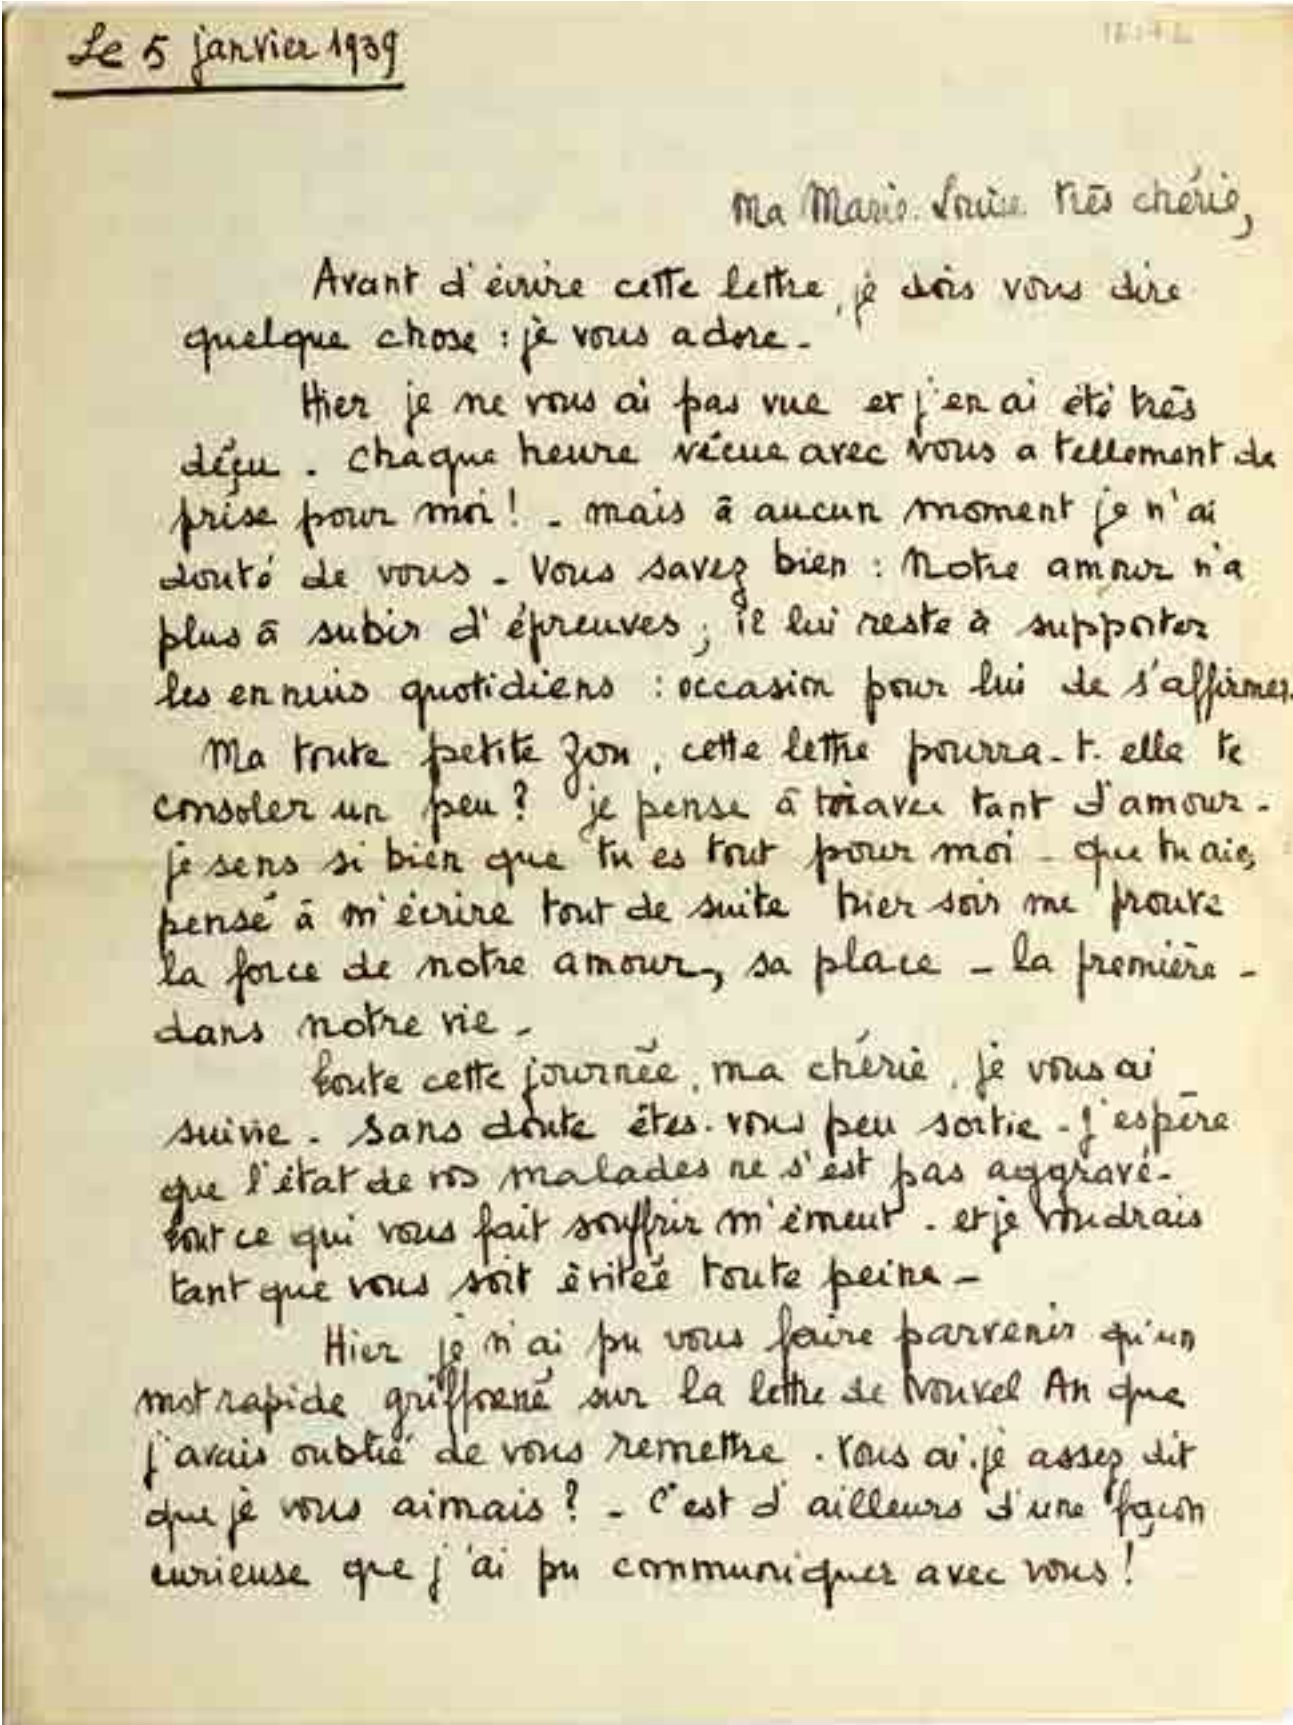 Le 5 janvier 1939
Ma Marie-Louise très chérie,
Avant d'écrire cette lettre, je dois vous dire
quelque chose : je vous adore -
Hier je ne vous ai pas vue et j'en ai été très
déçu. Chaque heure vécue avec vous a tellement de
prise pour moi ! - mais à aucun moment je n'ai
douté de vous - Vous savez bien : Notre amour n'a
plus à subir d'épreuves ; il lui reste à supporter
les ennuis quotidiens : occasion pour lui de s'affirmer.
Ma toute petite Zou, cette lettre pourra-t-elle te
consoler un peu ? je pense à toi avec tant d'amour -
je sens si bien que tu es tout pour moi - que tu aies
pensé à m'écrire tout de suite hier soir me prouve
la force de notre amour, sa place - la première -
dans notre vie -
Toute cette journée, ma chérie, je vous ai
suivie - Sans doute êtes-vous peu sortie - J'espère
que l'état de vos malades ne s'est pas aggravé -
tout ce qui vous fait souffrir m'émeut - et je voudrais
tant que vous soit évitée toute peine -
Hier je n'ai pu vous faire parvenir qu'un
mot rapide griffonné sur la lettre de Nouvel An que
j'avais oublié de vous remettre. Vous ai-je assez dit
que je vous aimais ? - C'est d'ailleurs d'une façon
curieuse que j'ai pu communiquer avec vous !